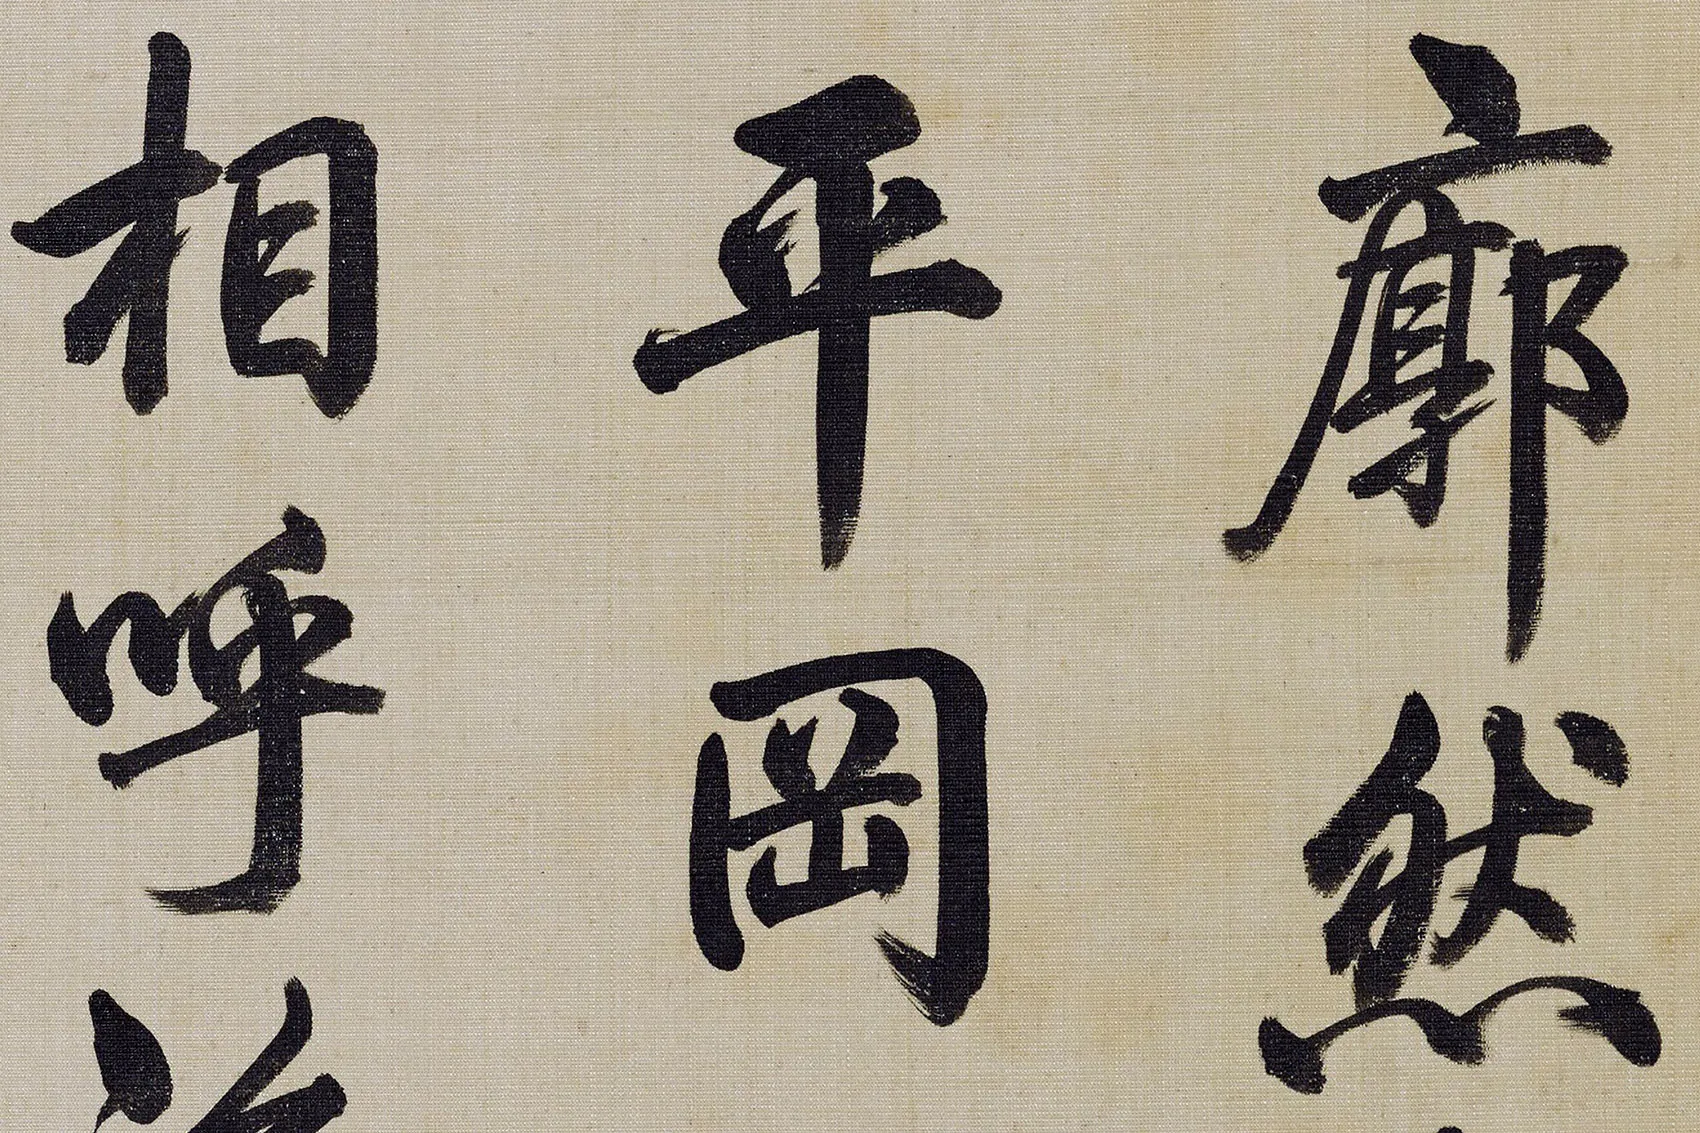 廓然
平岡
相呼